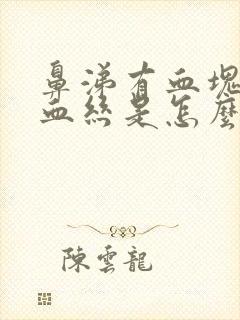 鼻涕有血塊
血絲是怎麼
陳雲龍